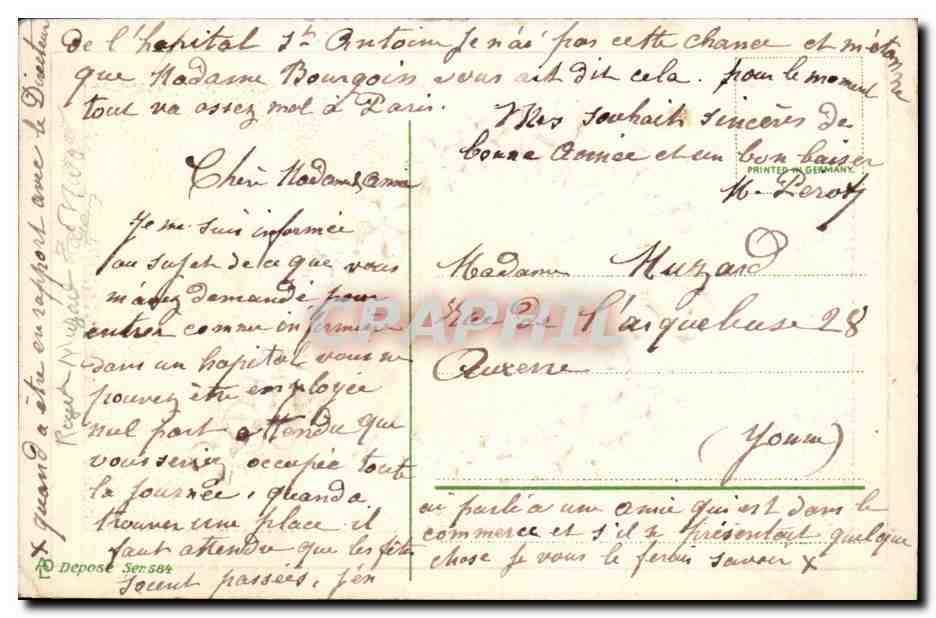 Chère Madame & Amie
Je me suis informée
au sujet de ce que vous
m'avez demandé pour
entrer comme infirmière
dans un hopital vous ne
pouvez être employée
nul part attendu que
vous seriez occupée toute
la journée, quand a
trouver une place il
faut attendre que les fêtes
soient passées, j'en
ai parlé a une amie qui est dans le
commerce et s'il se présentait quelque
chose Je vous le ferai savoir x
x quand a être en rapport avec le Directeur
de l'hopital St Antoine Je n'ai pas cette chance et m'étonne
que Madame Bourgoin vous ait dit cela. pour le moment
tout va assez mal à Paris.
Mes souhaits sincères de
bonne année et un bon baiser
M. Perot
PRINTED IN GERMANY.
Madame Muzard
Rue de l'arquebuse 28
Auxerre
(Yonne)
Roger Muzard
Déposé Ser. 584
CPAPHIL